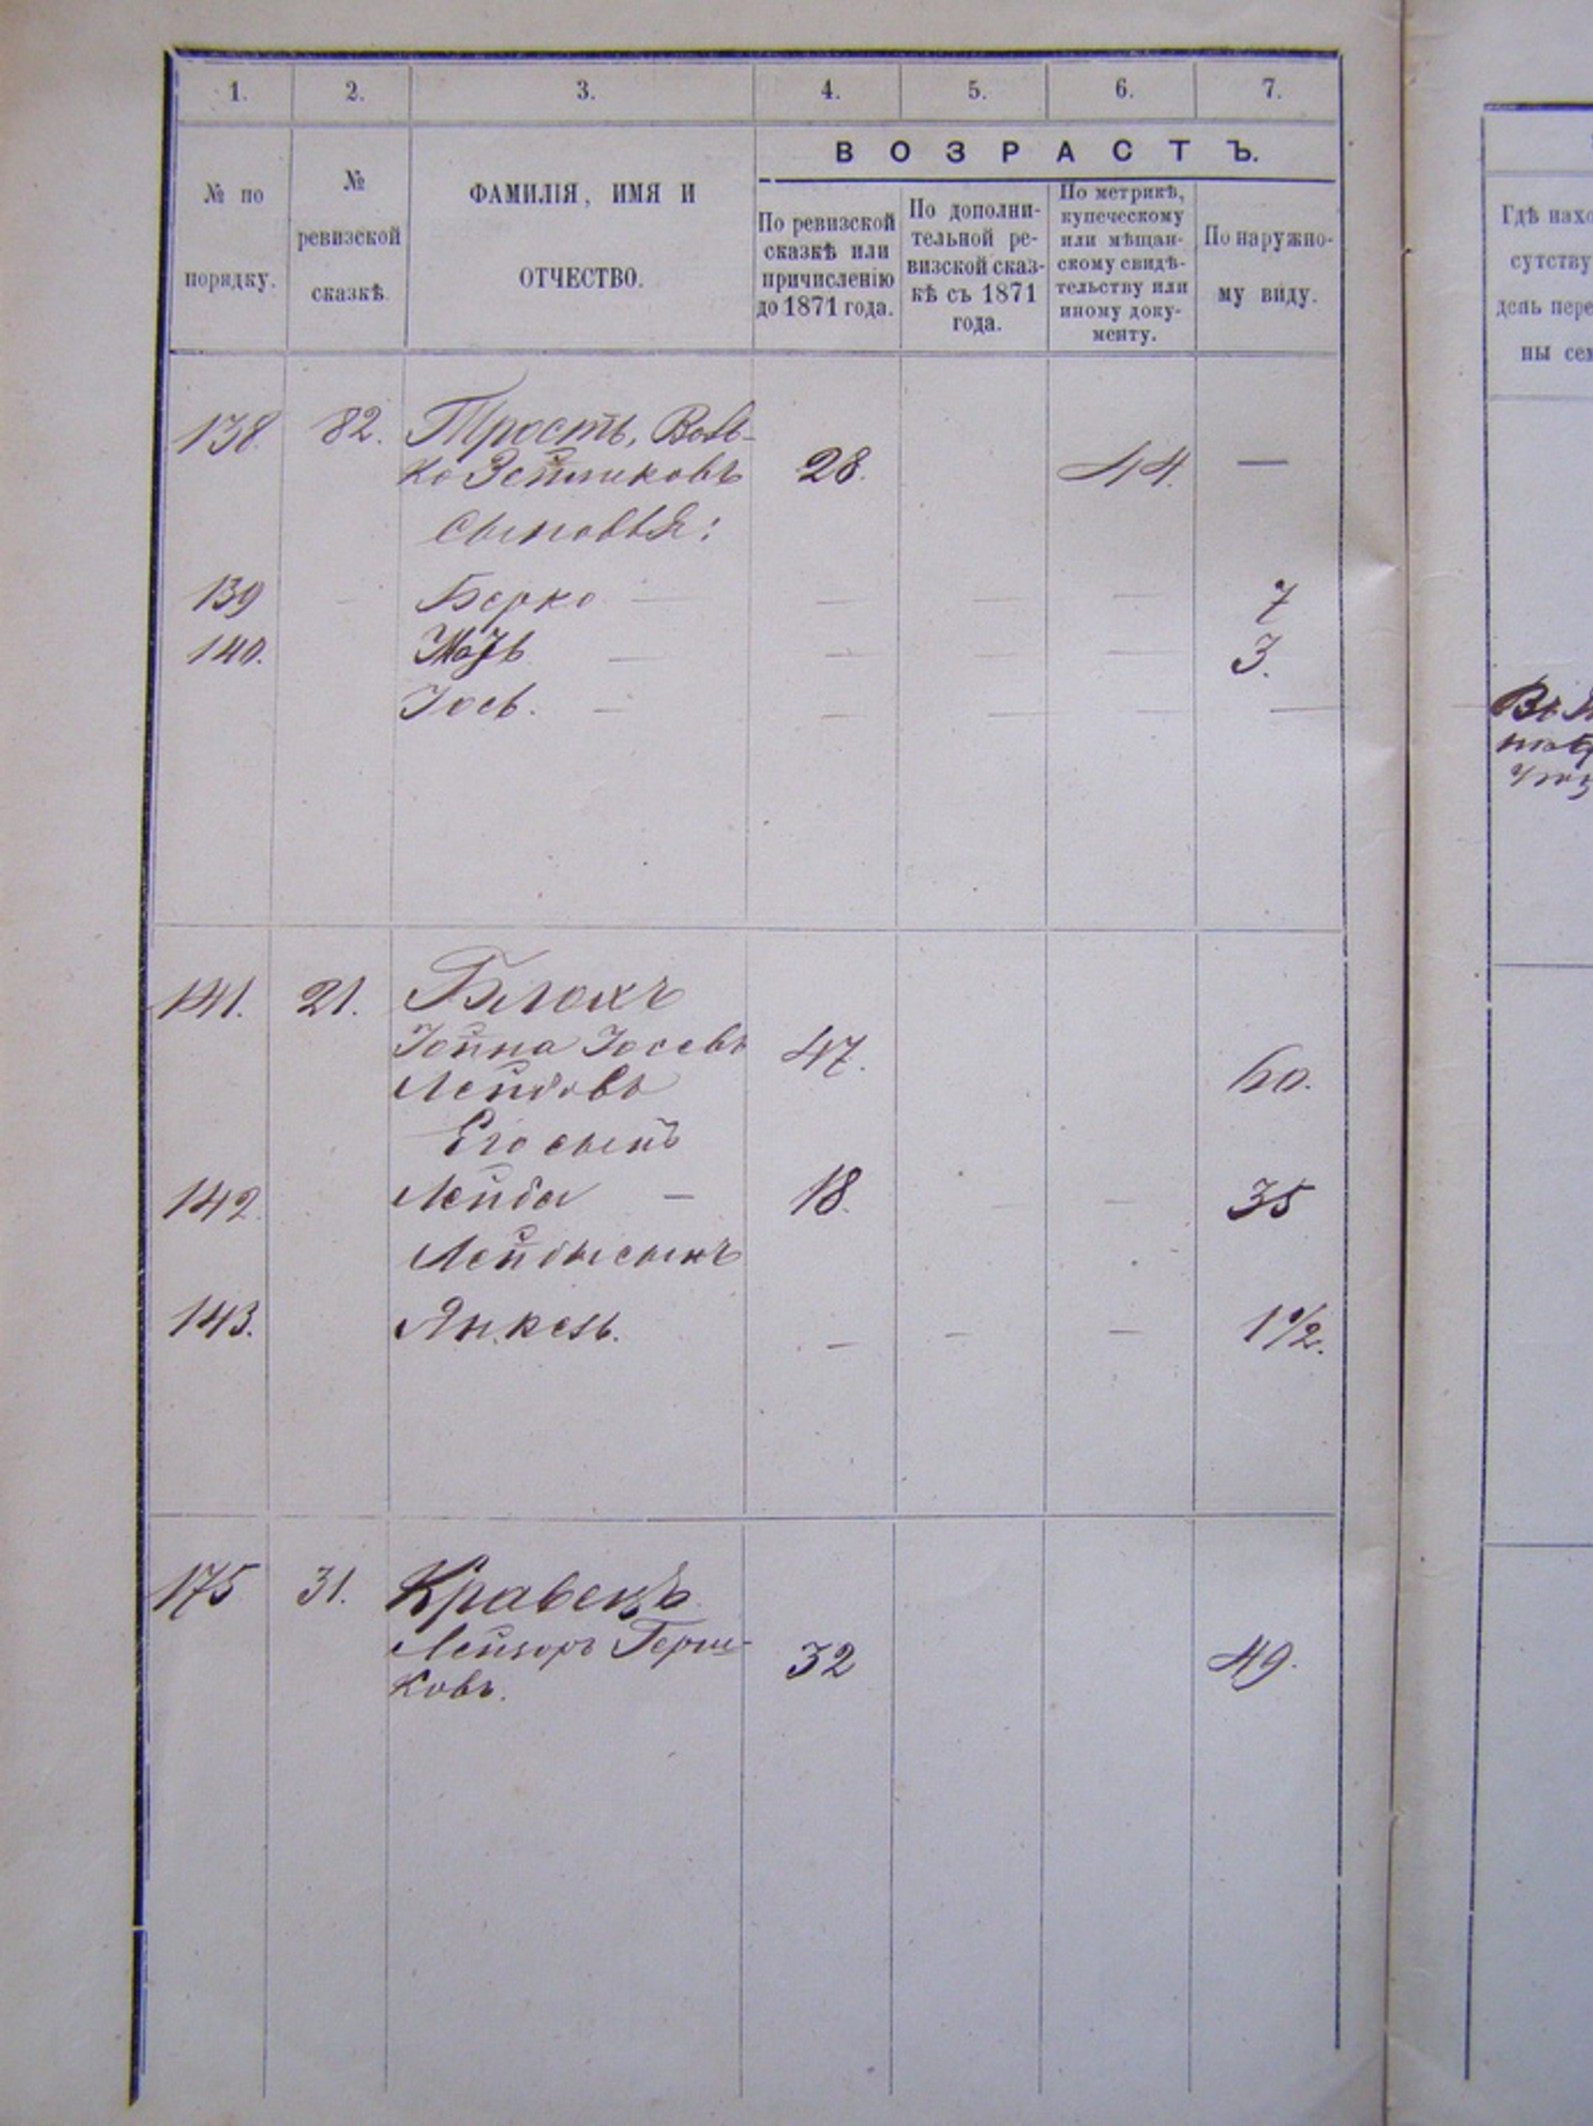 1. 2. 3. 4. 5. 6. 7.
№ по порядку.
№ ревизской сказкѣ.
ФАМИЛІЯ, ИМЯ И
ОТЧЕСТВО.
ВОЗРАСТЪ.
По ревизской
сказкѣ или
причисленію
до 1871 года.
По дополни-
тельной ре-
визской сказ-
кѣ съ 1871
года.
По метрикѣ,
купеческому
или мѣщан-
скому свидѣ-
тельству или
иному доку-
менту.
По наружно-
му виду.
138. 82. Тростъ,Воль-
ко Зейликовъ 28. 44. —
Сыновья:
139 — Берко — — — — 7
140. — — — — 3.
Іось. — — — — —
141. 21. Блохъ
Іойна Іосевъ 47. 60.
Лейбовъ
Его сынъ
142. Лейба — 18. — — 35
Лейбы сынъ
143. Янкель. — — — 1 1/2.
175 31. Кравецъ
Лейзоръ Герш-
ковъ. 32 49.
Гдѣ нахо
сутству
день пере
ны сем